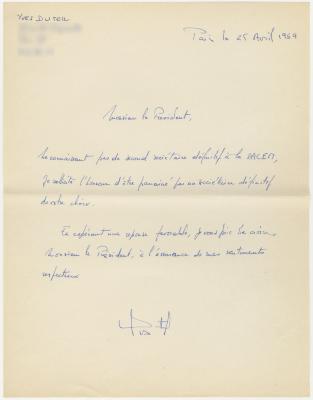 YVES DUTEIL
Paris le 25 Avril 1969
Monsieur le Président,
Ne connaissant pas de second sociétaire définitif à la SACEM,
Je sollicite l'honneur d'être parrainé par un sociétaire définitif
de votre choix.
En espérant une réponse favorable, je vous prie de croire,
Monsieur le Président, à l'assurance de mes sentiments
respectueux